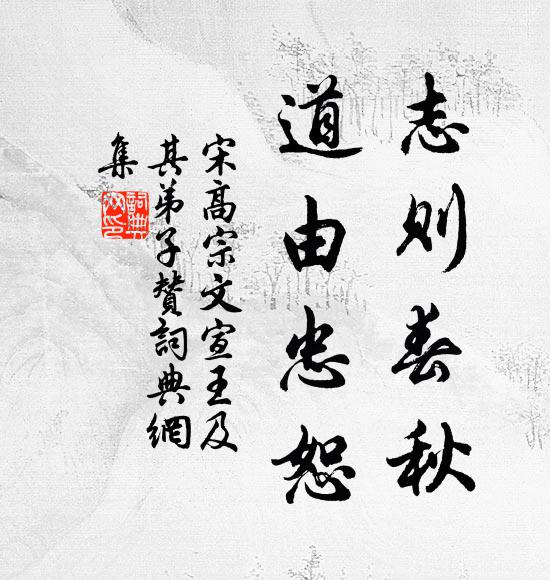 志则春秋
道由忠恕
宋高宗文宣王及
其弟子赞詞典網
集
詞典網印